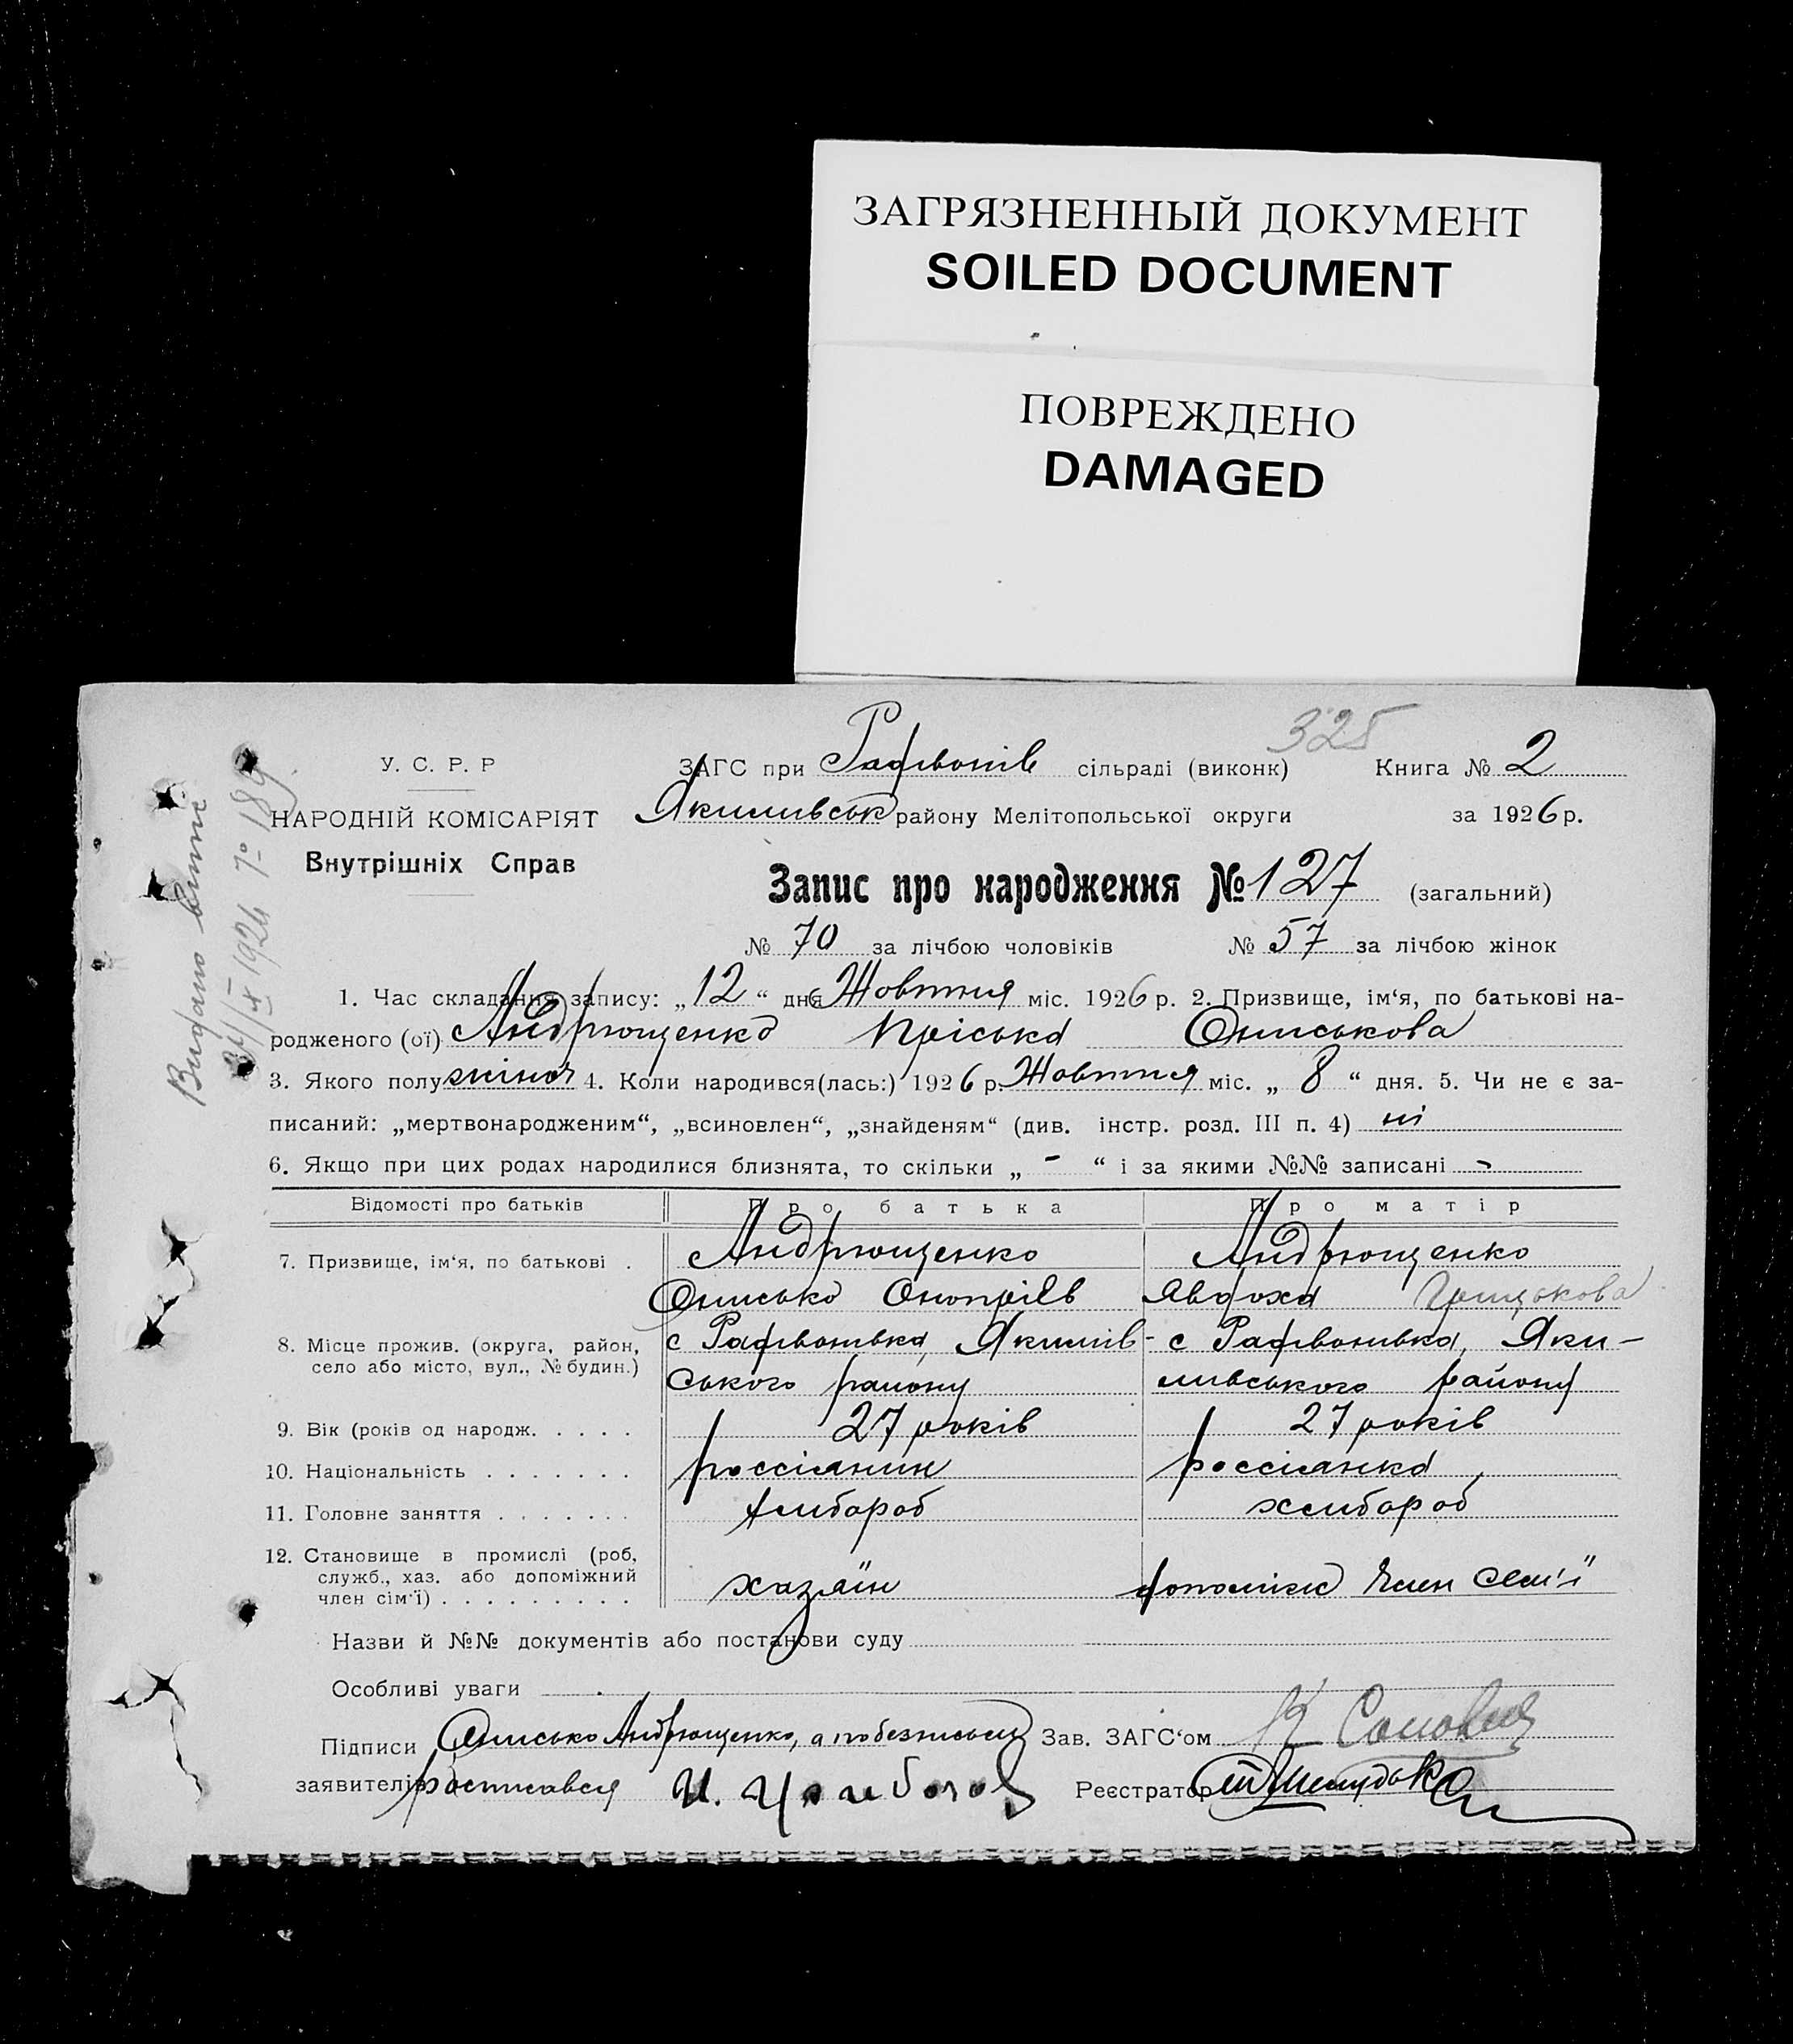 ЗАГРЯЗНЕННЫЙ ДОКУМЕНТ
SOILED DOCUMENT
ПОВРЕЖДЕНО
DAMAGED
325
У. С. Р. Р
НАРОДНІЙ КОМІСАРІЯТ
Внутрішніх Справ
ЗАГС при Радівонів сільраді (виконк) Книга № 2
Якимівськ району Мелітопольської округи за 1926 р.
Запис про народження № 127 (загальний)
№ 70 за лічбою чоловіків № 57 за лічбою жінок
1. Час складання запису: „12“ дня Жовтня міс. 1926 р. 2. Призвище, ім‘я, по батькові на-
родженого (ої) Андрющенко Пріська Ониськова
3. Якого полу жіноч 4. Коли народився(лась:) 1926 р. Жовтня міс. „ 8 “ дня. 5. Чи не є за-
писаний: „мертвонародженим“, „всиновлен“, „знайденям“ (див. інстр. розд. III п. 4) ні
6. Якщо при цих родах народилися близнята, то скільки „ - “ і за якими №№ записані -
Відомості про батьків Про батька Про матір
7. Призвище, ім‘я, по батькові . Андрющенко Андрющенко
Онисько Онопріев Явдоха Грицькова
8. Місце прожив. (округа, район, с Радівонівка, Якимів- с Радівонівка, Яки-
село або місто, вул., № будин.) ського району мивського району
9. Вік (років од народж. . . . . 27 років 27 років
10. Національність . . . . . . . россіянин россіянка
11. Головне заняття . . . . . . . хлібороб хлібороб
12. Становище в промислі (роб,
служб., хаз. або допоміжний хазяїн допоміжн член сем'ї
член сім‘ї) . . . . . . . . .
Назви й №№ документів або постанови суду
Особливі уваги
Підписи Онисько Андрющенко, а по безписьм Зав. ЗАГС‘ом
заявителів росписався И. Реєстратор
Видано витяг
1926 № 189